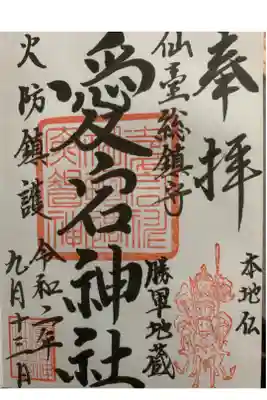 奉拝
本地仏
仙臺総鎮守
勝軍地蔵
愛宕神社
火防鎮護
令和二年
九月十三日